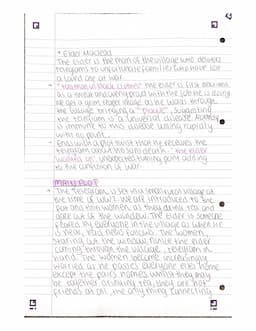 • Elder Macleod
The elder is the man of the village who delivers
telegrams to unfortunate families who have lost
a loved one at war.
- "tall man in black clothes" The elder is first described
as a threat and very proud with the job he is doing.
we get a grim reaper image as he walks through
the village bringing a "plague", suggesting
the telegram is a universal disease. Nobody
is immune to this disease killing rapidly
with no point.
- Ends with a plot twist that he receives the
telegram about his son's death - "the elder
walked on" unexpected turning point adding
to the confusion of war.
MAIN PLOT
- The Telegram is set in a small rural village at
the time of WW2. We are introduced to two
fat and thin women, as they drink tea and
gaze out of the window. The elder is someone
feared by everyone in the village as when he
is near, bad news follows. The women,
staring out the window, notice the elder
coming through the village, telegram in
hand. The women become increasingly
worried as he passes everyone else's home
except the pair's homes. Whilst they may
be together drinking tea, they are not
friends at all, the only thing connecting